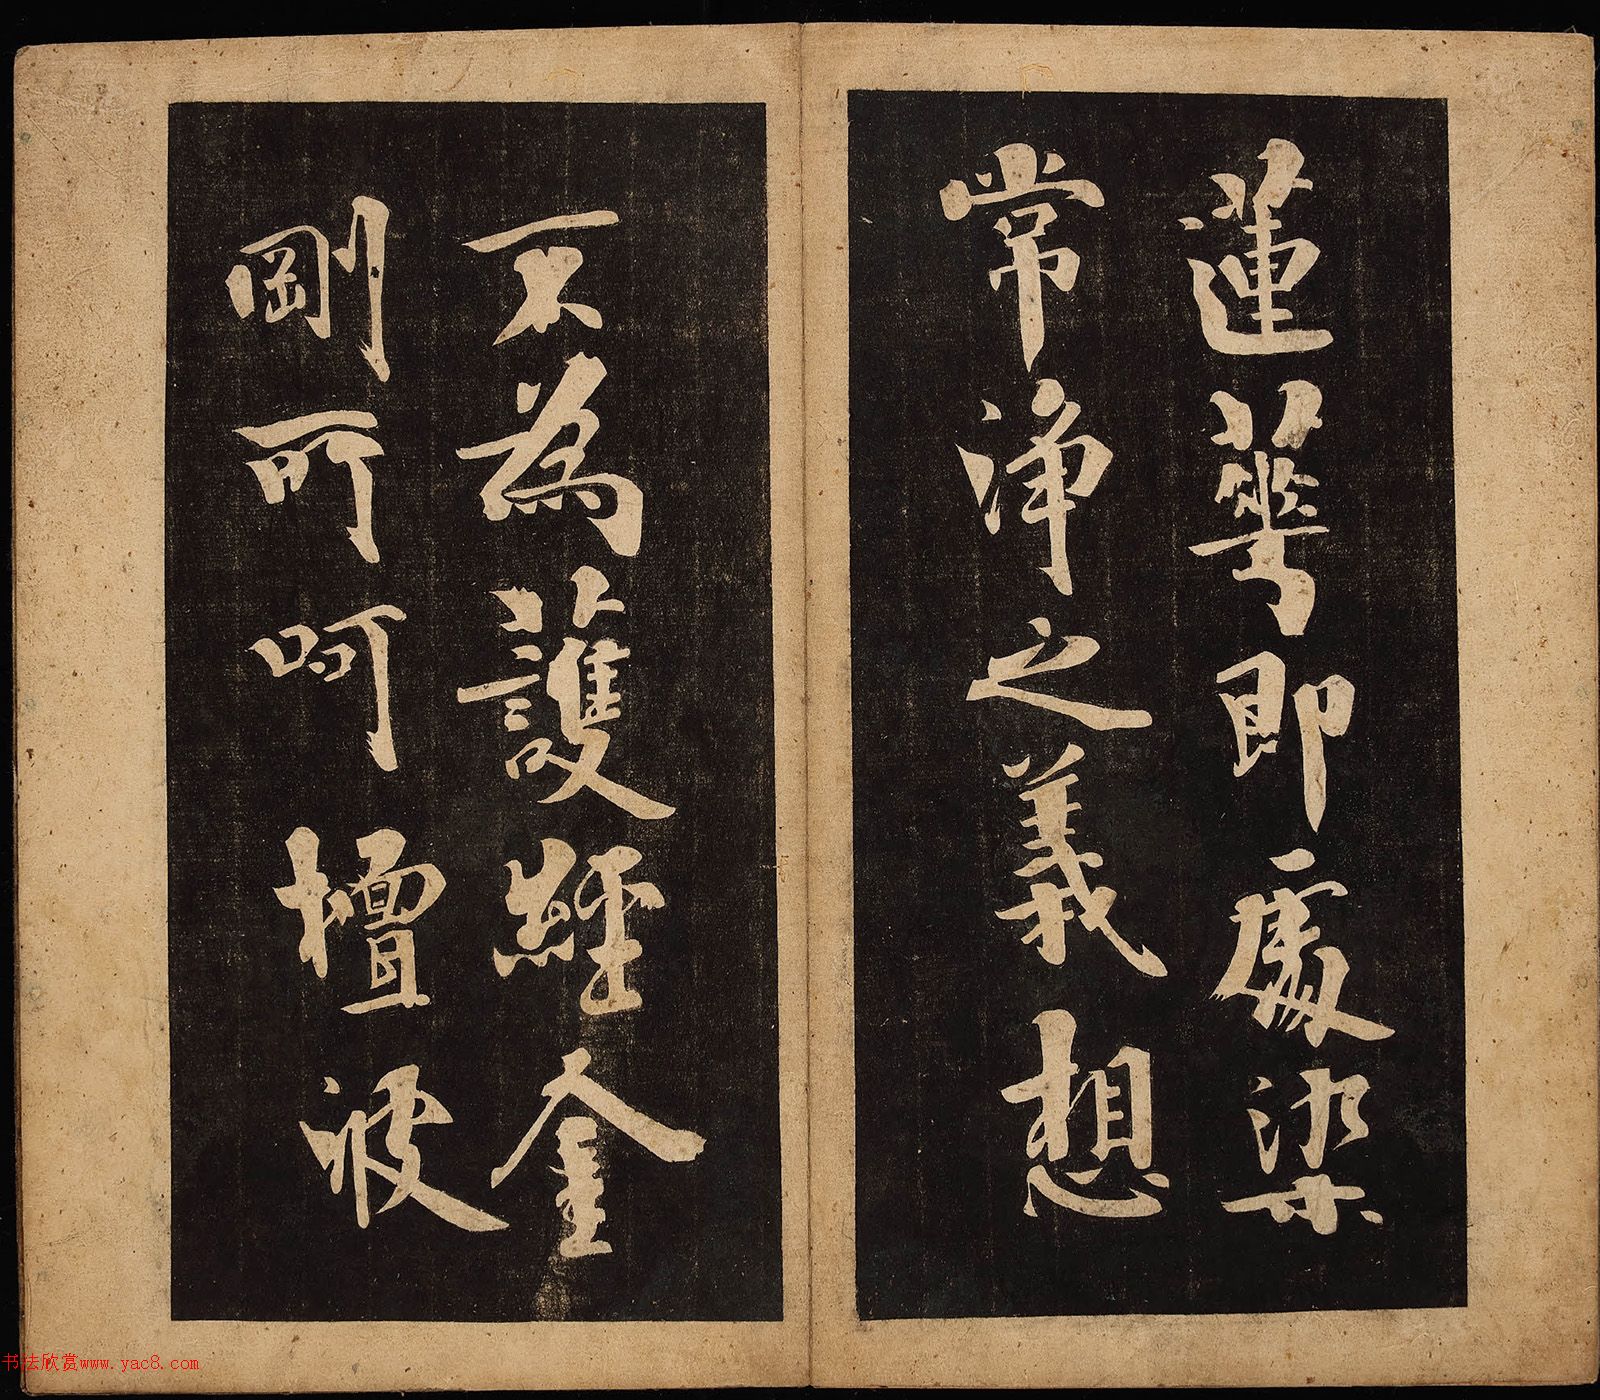 蓮華即處染
常淨之義想
不為護經金
剛所呵檀波
书法欣赏www.yac8.com